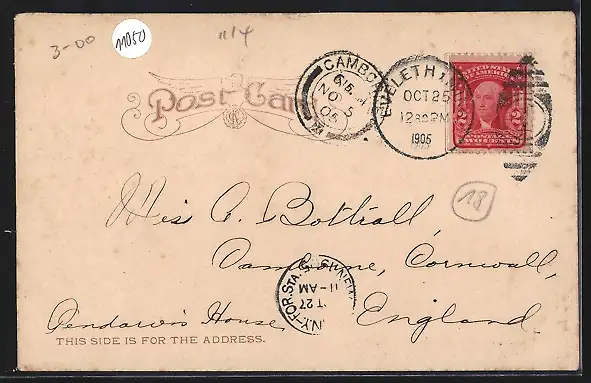 3-00
M050
1114
Post Card
CAMBO
6 15
NO 5
05
EVELETH
OCT 25
12 PM
1905
UNITED STATES
OF AMERICA
2 2
POSTAGE
TWO CENTS
18
Miss A. Bottrall,
Camborne, Cornwall,
Pendarvis House England.
N.Y.-FOR. STA.
T 27
11-AM
THIS SIDE IS FOR THE ADDRESS.